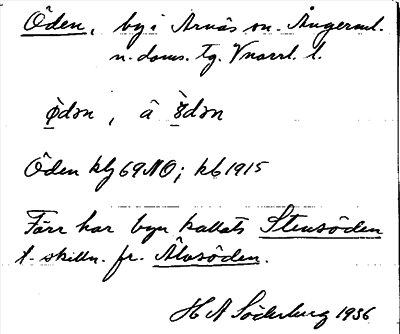 Öden, by i Arnäs sn. Ångerml.
n. doms. tg. Vnorrl. l.
ø̀dən, å ꞵ̀dən
Öden klj 69 NO; kb 1915
Förr har byn kallats Stensöden
t. skilln. fr. Älvsöden.
H A Söderberg 1936